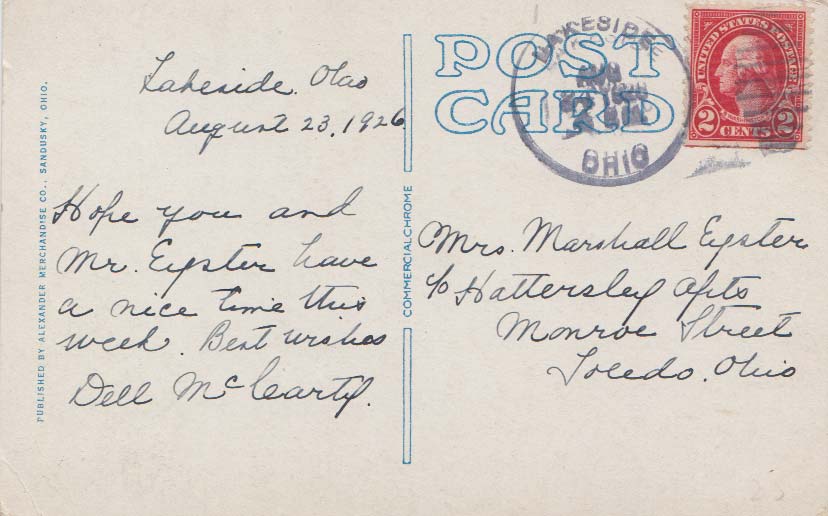 Lakeside, Ohio
August 23, 1926
Hope you and
Mr. Eyster have
a nice time this
week. Best wishes
Dell McCarty.
PUBLISHED BY ALEXANDER MERCHANDISE CO., SANDUSKY, OHIO.
COMMERCIALCHROME
POST
CARD
LAKESIDE
AUG
OHIO
UNITED STATES POSTAGE
2 CENTS 2
Mrs. Marshall Eyster
c/o Hattersley Apts
Monroe Street
Toledo, Ohio